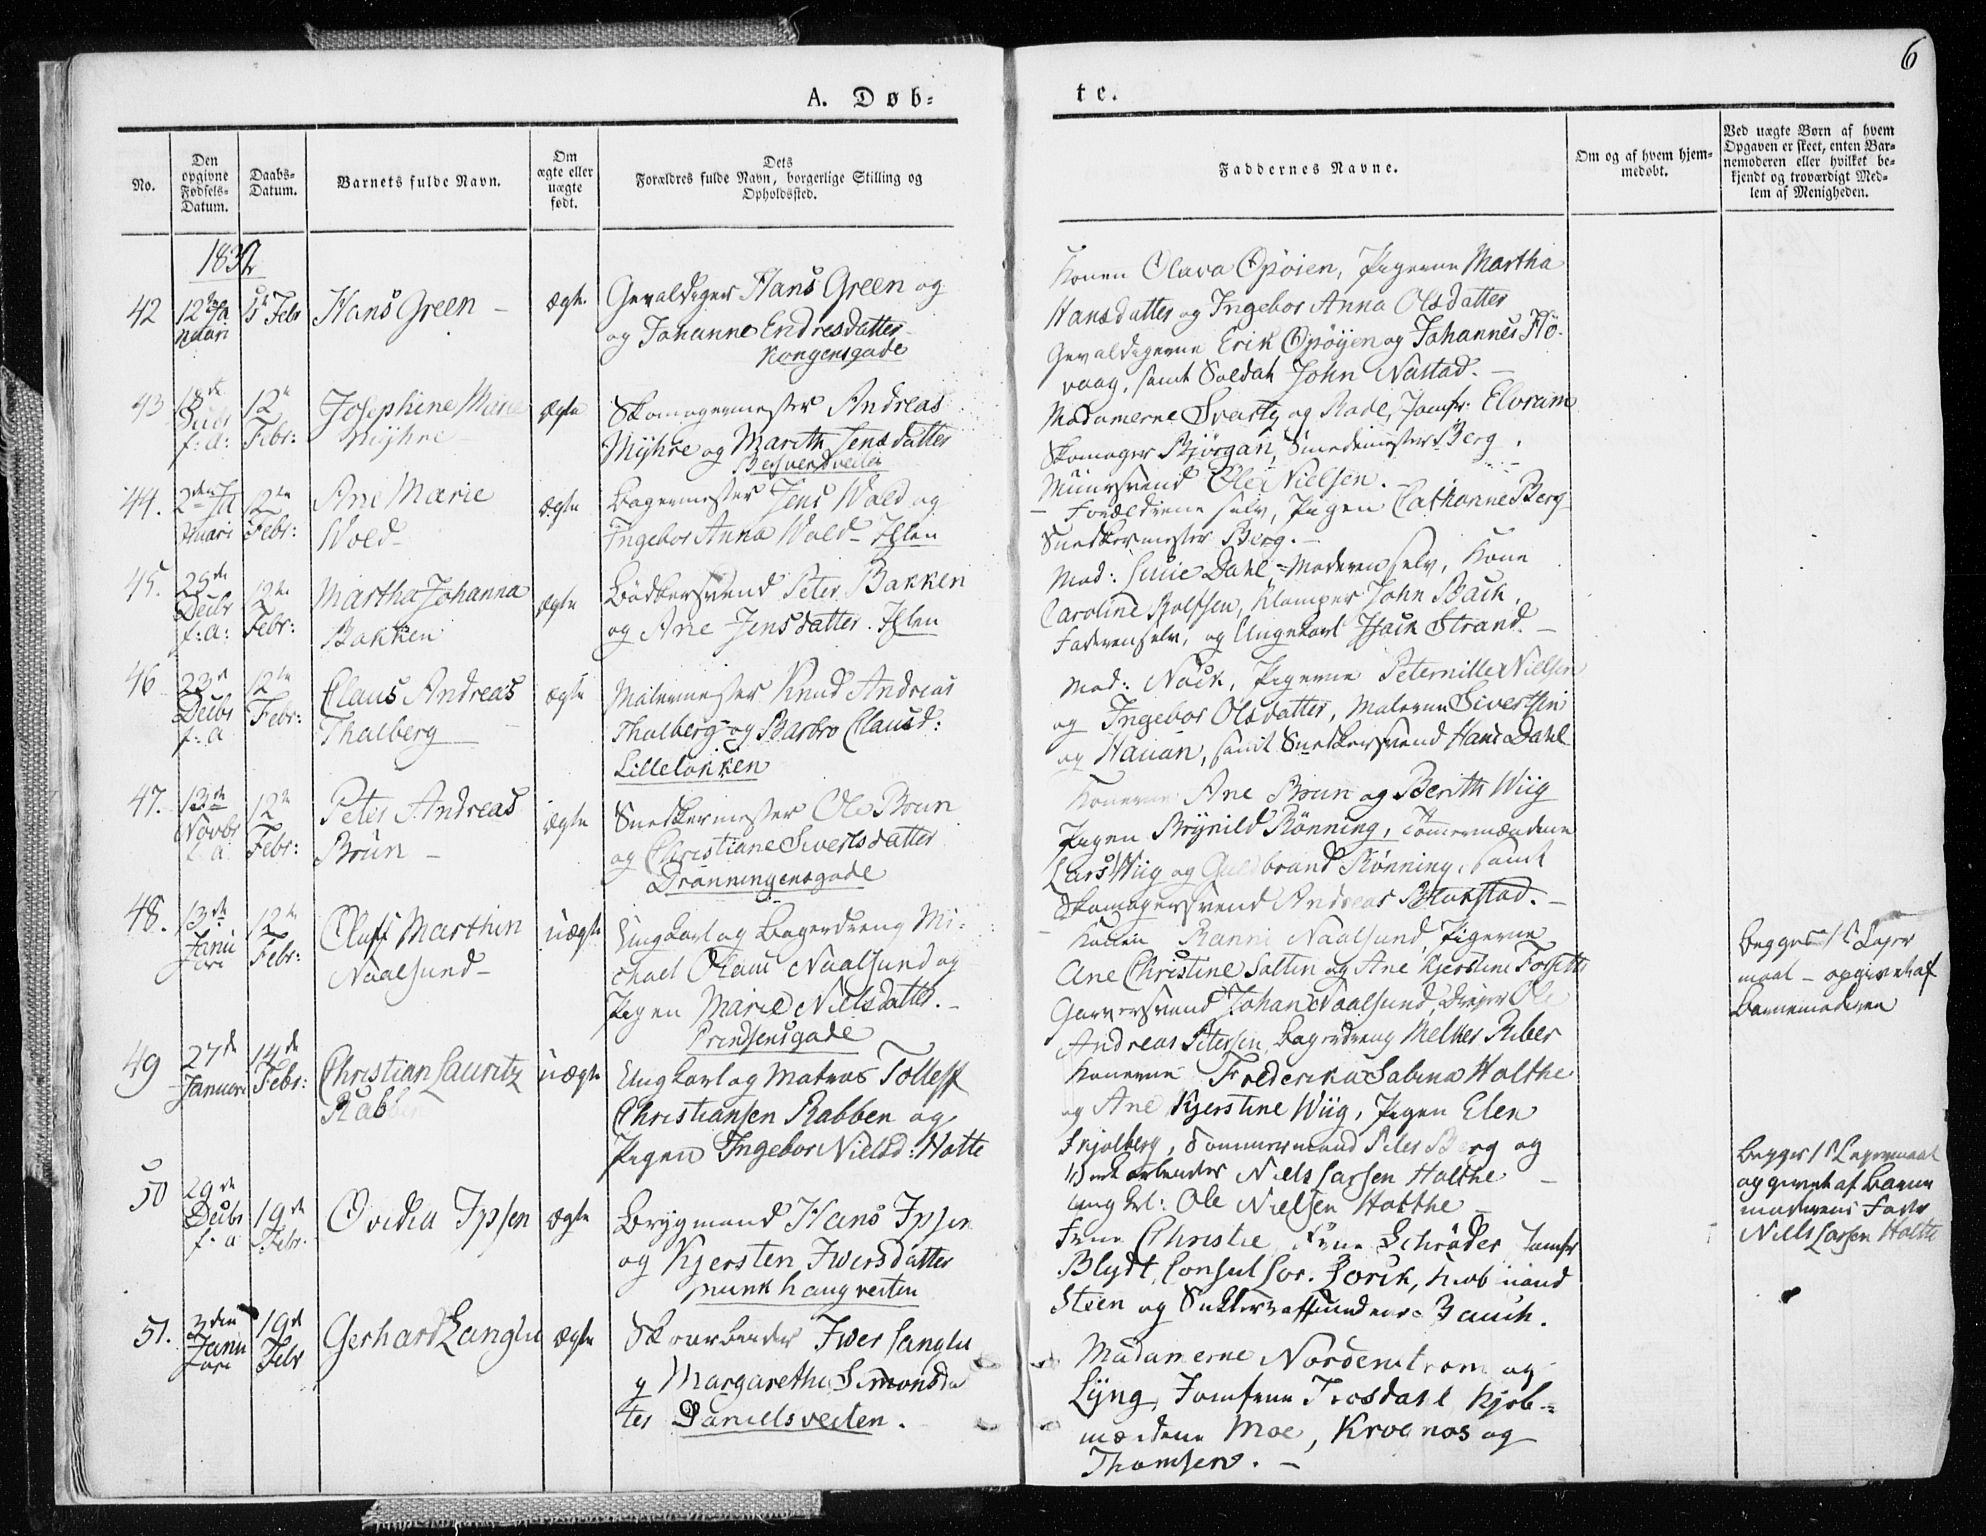 6
A. Døb-
te.
No.
Den opgivne Fødsels-Datum.
Daabs-Datum.
Barnets fulde Navn.
Om ægte eller uægte født.
Dets Forældres fulde Navn, borgerlige Stilling og Opholdssted.
Faddernes Navne.
Om og af hvem hjem-medøbt.
Ved uægte Børn af hvem Opgaven er skeet, enten Bar-nemoderen eller hvilket be-kjendt og troværdigt Med-lem af Menigheden.
1832
42
12te Ja
nuari
Febr
Hans Green
ægte
Gevaldiger Hans Green og
og Johanne Endresdatter
Kongensgade
Konen Olava Opøien, Pigerne Martha
Hansdatter og Ingebor Anna Olsdatter
Gevaldigerne Erik Opøyen og Johannes Hø-
vaag, samt Soldat John Nastad.
43
18de
Decbr
f: a:
12te
Febr:
Josephine Marie
Myhre
ægte
Skomagermester Andreas
Myhre og Marith Jensdatter
Madamerne Svartz og Rode, Jomfr: Elvram
Skomager Bjørgan, Smedemester Berg.
Muursvend Ole Nielsen.
44.
2den Ja
nuari
12te
Febr:
Ane Marie
Wold
ægte
Bagermester Jens Wold og
Ingebor Anna Wold Ihlen
Forældrene selv, Pigen Cathrine Berg
Snedkermester Berg.
45.
25de
Decbr
f: a:
12te
Febr:
Martha Johanna
Bakken
ægte
Bødkersvend Peter Bakken
og Ane Jensdatter. Ihlen
Mad: Dahl, Moderen selv, Kone
Caroline Rolfsen, Klamper John Bach,
Faderen selv, og Ungekarl Isach Strand.
46
23de
Decbr
f: a
12te
Febr:
Claus Andreas
Thalberg
ægte
Malermester Knud Andreas
Thalberg og Barbro Clausd:
Lilleløkken
Mad: Nock, Pigerne Peternille Nielsen
og Ingebor Olsdatter, Malerne Sivertsen
og Hauan, samt Snedkersvend Hans Dahl
47.
13de
Novbr
f: a
12te
Febr:
Peter Andreas
Brun
ægte
Snedkermester Ole Brun
og Christiane Sivertsdatter
Dronningensgade
Konerne Ane Brun og Berith Wiig
Pigen Brynild Rønning, Tømmermændene
Lars Wiig og Guldbrand Rønning, samt
Skomagersvend Andreas
48.
13de
Janu
ari
12te
Febr:
Oluff Marthin
Naalsund
uægte
Ungkarl og Bagerdreng Mi-
chael Olaus Naalsund og
Pigen Marie Nielsdatter.
Prindsensgade
Konen Ranni Naalsund, Pigerne
Ane Christine Salten og Ane Kjerstine Forseth
Garversvend Johan Naalsund, Dreier Ole
Andreas Petersen, Bagerdreng Melkes Riber
Begges 1ste Leier
maal - opgivet af
Barnemoderen
49
27de
Januari
14de
Febr:
Christian Lauritz
Rabben
uægte
Ungkarl og Matros Tolleff
Christiansen Rabben og
Pigen Ingebor Nielsd: Holte
Konerne Frederika Sabina Holthe
og Ane Kjerstine Wiig, Pigen Elen
Fejolberg, Tømmermand Peter Berg og
Niels Larsen Holthe
Ungkl: Ole Nielsen Holthe
Begges 1ste Leiermaal
opgivet af Barne
moderens Fader
Niels Larsen Holthe
50
29de
Decbr
f: a
19de
Febr.
Ovidia Ipsen
ægte
Brygmand Hans Ipsen
og Kjersten Iversdatter
Munkhaugveiten
Frue Christie, Frue Schrøder, Jomfr
Blydt, Consul Sor. Lorck, Kjøbmand
Steen og Bauck.
51.
3den
Janu
ari
19de
Febr
Gerhard Langlie
ægte
Iver Langlie
og Margaretha Simonsdat
ter Danielsveiten.
Madamerne Nordenstrøm og
Lyng, Jomfrue Trosdahl Kjøb-
mændene Moe, Krognos og
Thomsen.